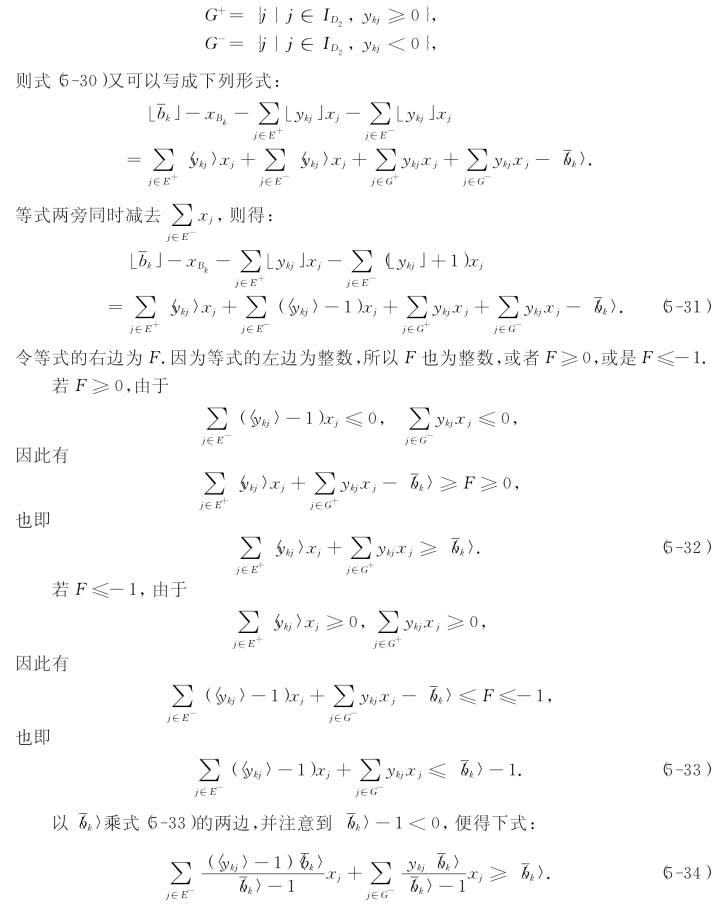 G⁺ = {j | j ∈ I_{D₂}, y_{kj} ⩾ 0},
G⁻ = {j | j ∈ I_{D₂}, y_{kj} < 0},
则式(5-30)又可以写成下列形式:
⌊b̄_k⌋ − x_{B_k} − ∑_{j∈E⁺} ⌊y_{kj}⌋x_j − ∑_{j∈E⁻} ⌊y_{kj}⌋x_j
= ∑_{j∈E⁺} ⟨y_{kj}⟩x_j + ∑_{j∈E⁻} ⟨y_{kj}⟩x_j + ∑_{j∈G⁺} y_{kj}x_j + ∑_{j∈G⁻} y_{kj}x_j − ⟨b̄_k⟩.
等式两旁同时减去 ∑_{j∈E⁻} x_j, 则得:
⌊b̄_k⌋ − x_{B_k} − ∑_{j∈E⁺} ⌊y_{kj}⌋x_j − ∑_{j∈E⁻} (⌊y_{kj}⌋ + 1)x_j
= ∑_{j∈E⁺} ⟨y_{kj}⟩x_j + ∑_{j∈E⁻} (⟨y_{kj}⟩ − 1)x_j + ∑_{j∈G⁺} y_{kj}x_j + ∑_{j∈G⁻} y_{kj}x_j − ⟨b̄_k⟩. (5-31)
令等式的右边为 F. 因为等式的左边为整数,所以 F 也为整数,或者 F ⩾ 0,或是 F ⩽ −1.
若 F ⩾ 0,由于
∑_{j∈E⁻} (⟨y_{kj}⟩ − 1)x_j ⩽ 0, ∑_{j∈G⁻} y_{kj}x_j ⩽ 0,
因此有
∑_{j∈E⁺} ⟨y_{kj}⟩x_j + ∑_{j∈G⁺} y_{kj}x_j − ⟨b̄_k⟩ ⩾ F ⩾ 0,
也即
∑_{j∈E⁺} ⟨y_{kj}⟩x_j + ∑_{j∈G⁺} y_{kj}x_j ⩾ ⟨b̄_k⟩. (5-32)
若 F ⩽ −1, 由于
∑_{j∈E⁺} ⟨y_{kj}⟩x_j ⩾ 0, ∑_{j∈G⁺} y_{kj}x_j ⩾ 0,
因此有
∑_{j∈E⁻} (⟨y_{kj}⟩ − 1)x_j + ∑_{j∈G⁻} y_{kj}x_j − ⟨b̄_k⟩ ⩽ F ⩽ −1,
也即
∑_{j∈E⁻} (⟨y_{kj}⟩ − 1)x_j + ∑_{j∈G⁻} y_{kj}x_j ⩽ ⟨b̄_k⟩ − 1. (5-33)
以 ⟨b̄_k⟩乘式(5-33)的两边,并注意到 ⟨b̄_k⟩ − 1 < 0, 便得下式:
∑_{j∈E⁻} ((⟨y_{kj}⟩ − 1)⟨b̄_k⟩)/(⟨b̄_k⟩ − 1) x_j + ∑_{j∈G⁻} (y_{kj}⟨b̄_k⟩)/(⟨b̄_k⟩ − 1) x_j ⩾ ⟨b̄_k⟩. (5-34)